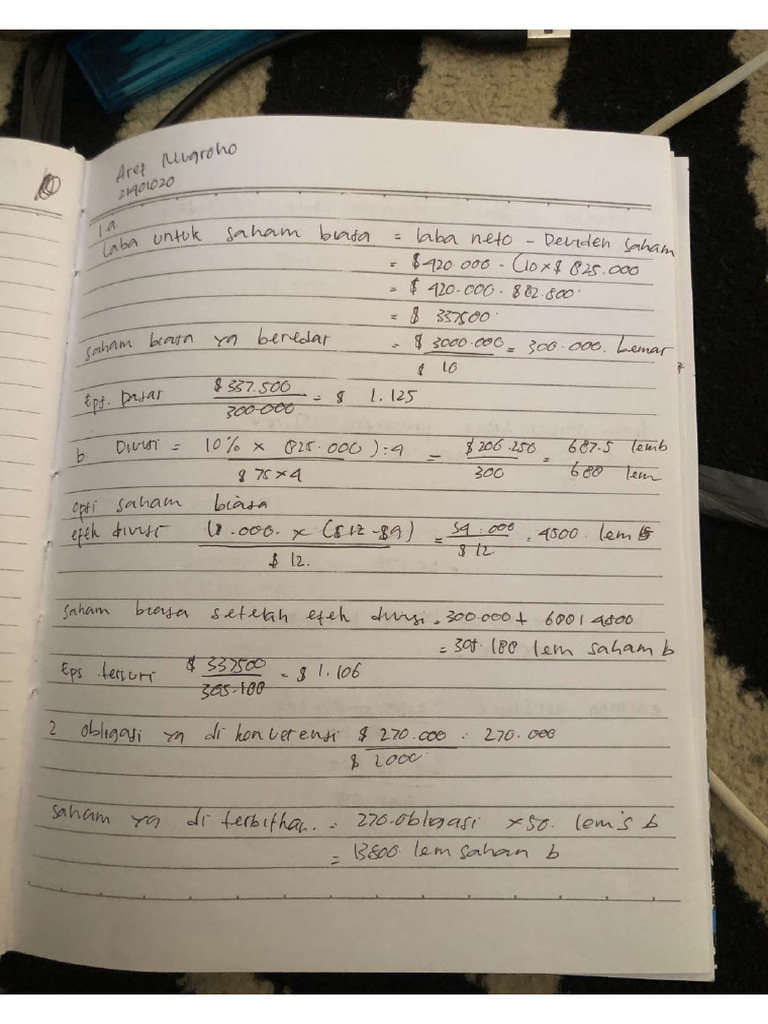 Aref Nugroho
21401020
1.a
Laba untuk saham biasa = laba neto - Deviden saham
= $420.000 - (10 x $ 825.000
= $ 420.000 - $82.500
= $ 337500
saham biasa yg beredar = $ 3000.000 = 300.000. Lemar
$ 10
Eps. Dasar $337.500 = $ 1.125
300.000
b. Divusi = 10% x (825.000) : 4 = $206.250 = 687.5 lemb
$ 75 x 4 300 688 lem
opsi saham biasa
efek divusi (8.000. x ($12 - $9) = 54.000 = 4500. lem
$ 12. $ 12
saham biasa setelah efek divusi = 300.000 + 600 + 4500
= 305.188 lem saham b
Eps tersuri $ 337500 = $ 1.106
305.188
2 obligasi yg di konversi $ 270.000 = 270.000
$ 1000
saham yg di terbitkan = 270.obligasi x 50. lem s b
= 13500. lem saham b